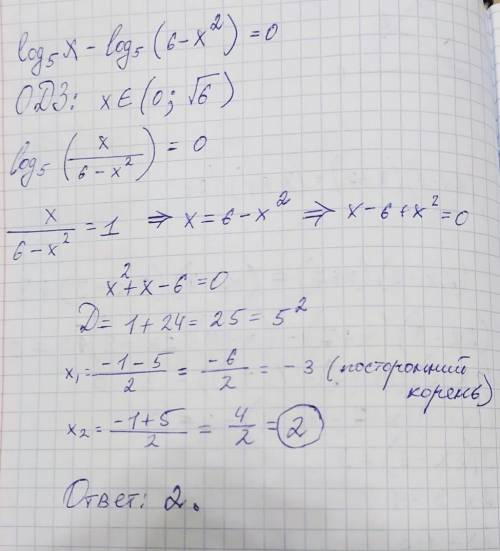 log₅x - log₅(6-x²) = 0
ОДЗ: x∈(0; √6)
log₅(x/(6-x²)) = 0
x/(6-x²) = 1 ⇒ x = 6-x² ⇒ x-6+x² = 0
x²+x-6=0
D = 1+24 = 25 = 5²
x₁ = (-1-5)/2 = -6/2 = -3 (посторонний
корень)
x₂ = (-1+5)/2 = 4/2 = 2
Ответ: 2.